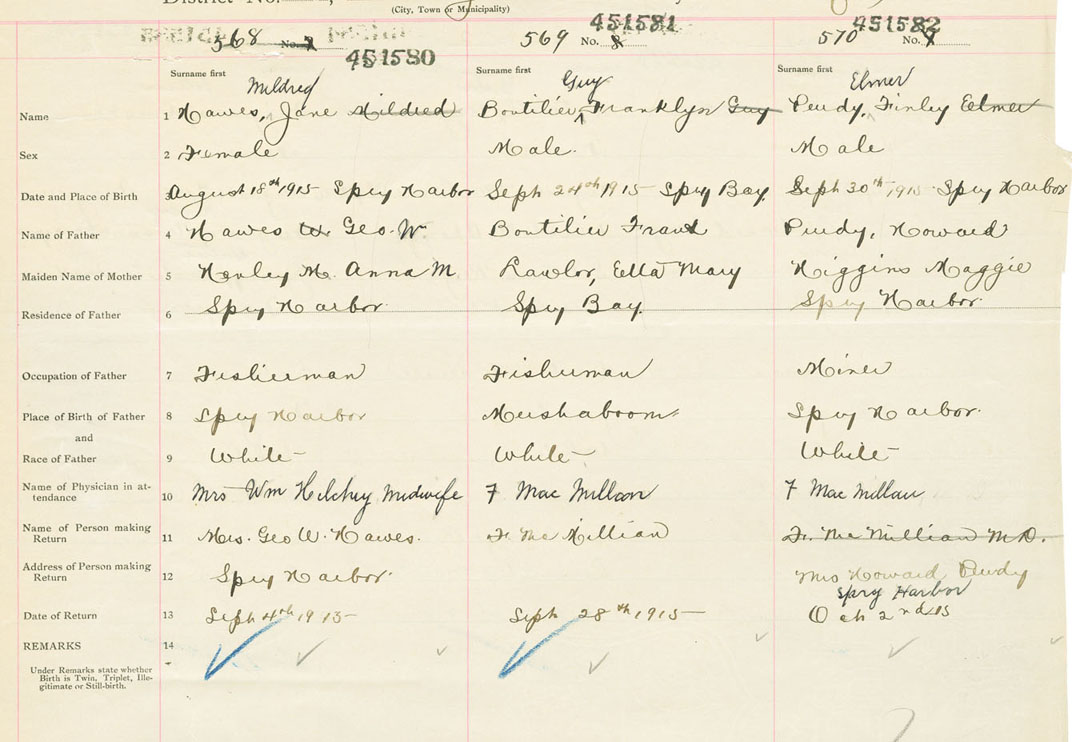 District No.
(City, Town or Municipality)
568 No. 7 451580
569 No. 8 451581
570 No. 9 451582
Surname first
Surname first
Surname first
Mildred
Guy
Elmer
Name 1 Hawes, Jane Mildred
Boutilier, Franklyn Guy
Purdy, Finley Elmer
Sex 2 Female
Male
Male
Date and Place of Birth 3 August 18th 1915 Spry Harbor
Sept 24th 1915 Spry Bay
Sept 30th, 1915 Spry Harbor
Name of Father 4 Hawes Geo. W.
Boutilier Frank
Purdy, Howard
Maiden Name of Mother 5 Henley M. Anna M.
Lawlor, Etta Mary
Higgins Maggie
Residence of Father 6 Spry Harbor
Spry Bay
Spry Harbor
Occupation of Father 7 Fisherman
Fisherman
Miner
Place of Birth of Father 8 Spry Harbor
Mushaboom
Spry Harbor
and
Race of Father 9 White
White
White
Name of Physician in at-
tendance 10 Mrs Wm Hilchey Midwife
F MacMillan
F MacMillan
Name of Person making
Return 11 Mrs. Geo W. Hawes.
F. McMillian
F. McMillian M.D.
Address of Person making
Return 12 Spry Harbor
Mrs Howard Purdy
Spry Harbor
Date of Return 13 Sept 4th 1915
Sept 28th 1915
Oct 2nd 15
REMARKS 14
Under Remarks state whether
Birth is Twin, Triplet, Ille-
gitimate or Still-birth.